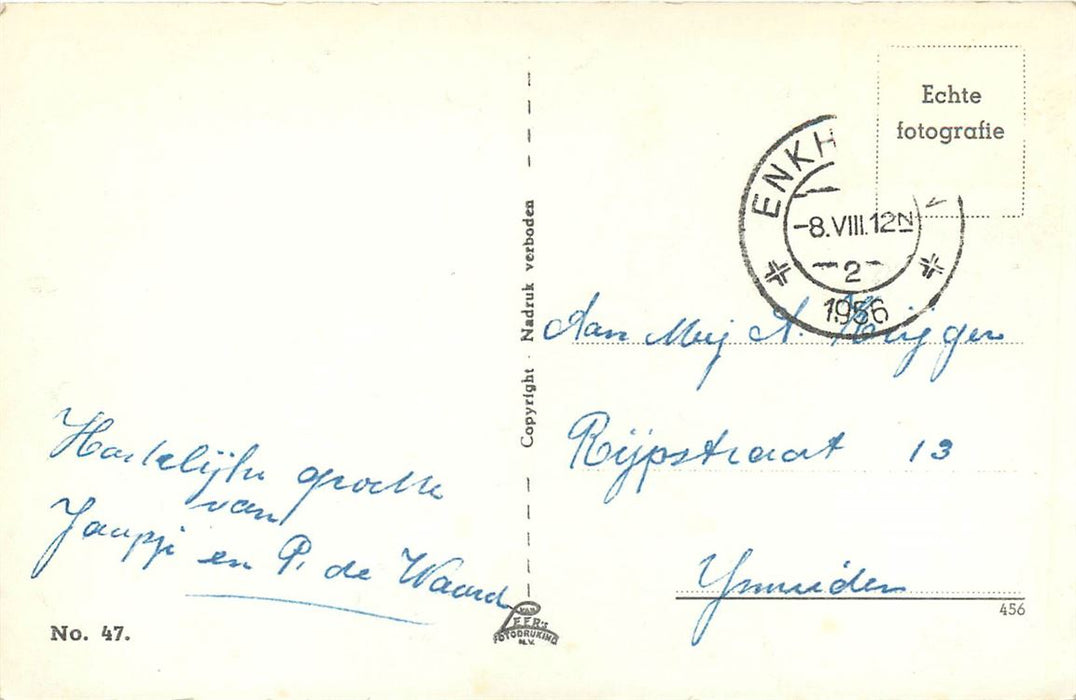 Echte
fotografie
ENKH
-8.VIII.12N
2
1956
Copyright · Nadruk verboden
Aan Mej A. Kuijger
Rijpstraat 13
Ymuiden
456
Hartelijke groete
van
Jaapje en P. de Waard
No. 47.
VAN
LEER's
FOTODRUKIND
N.V.